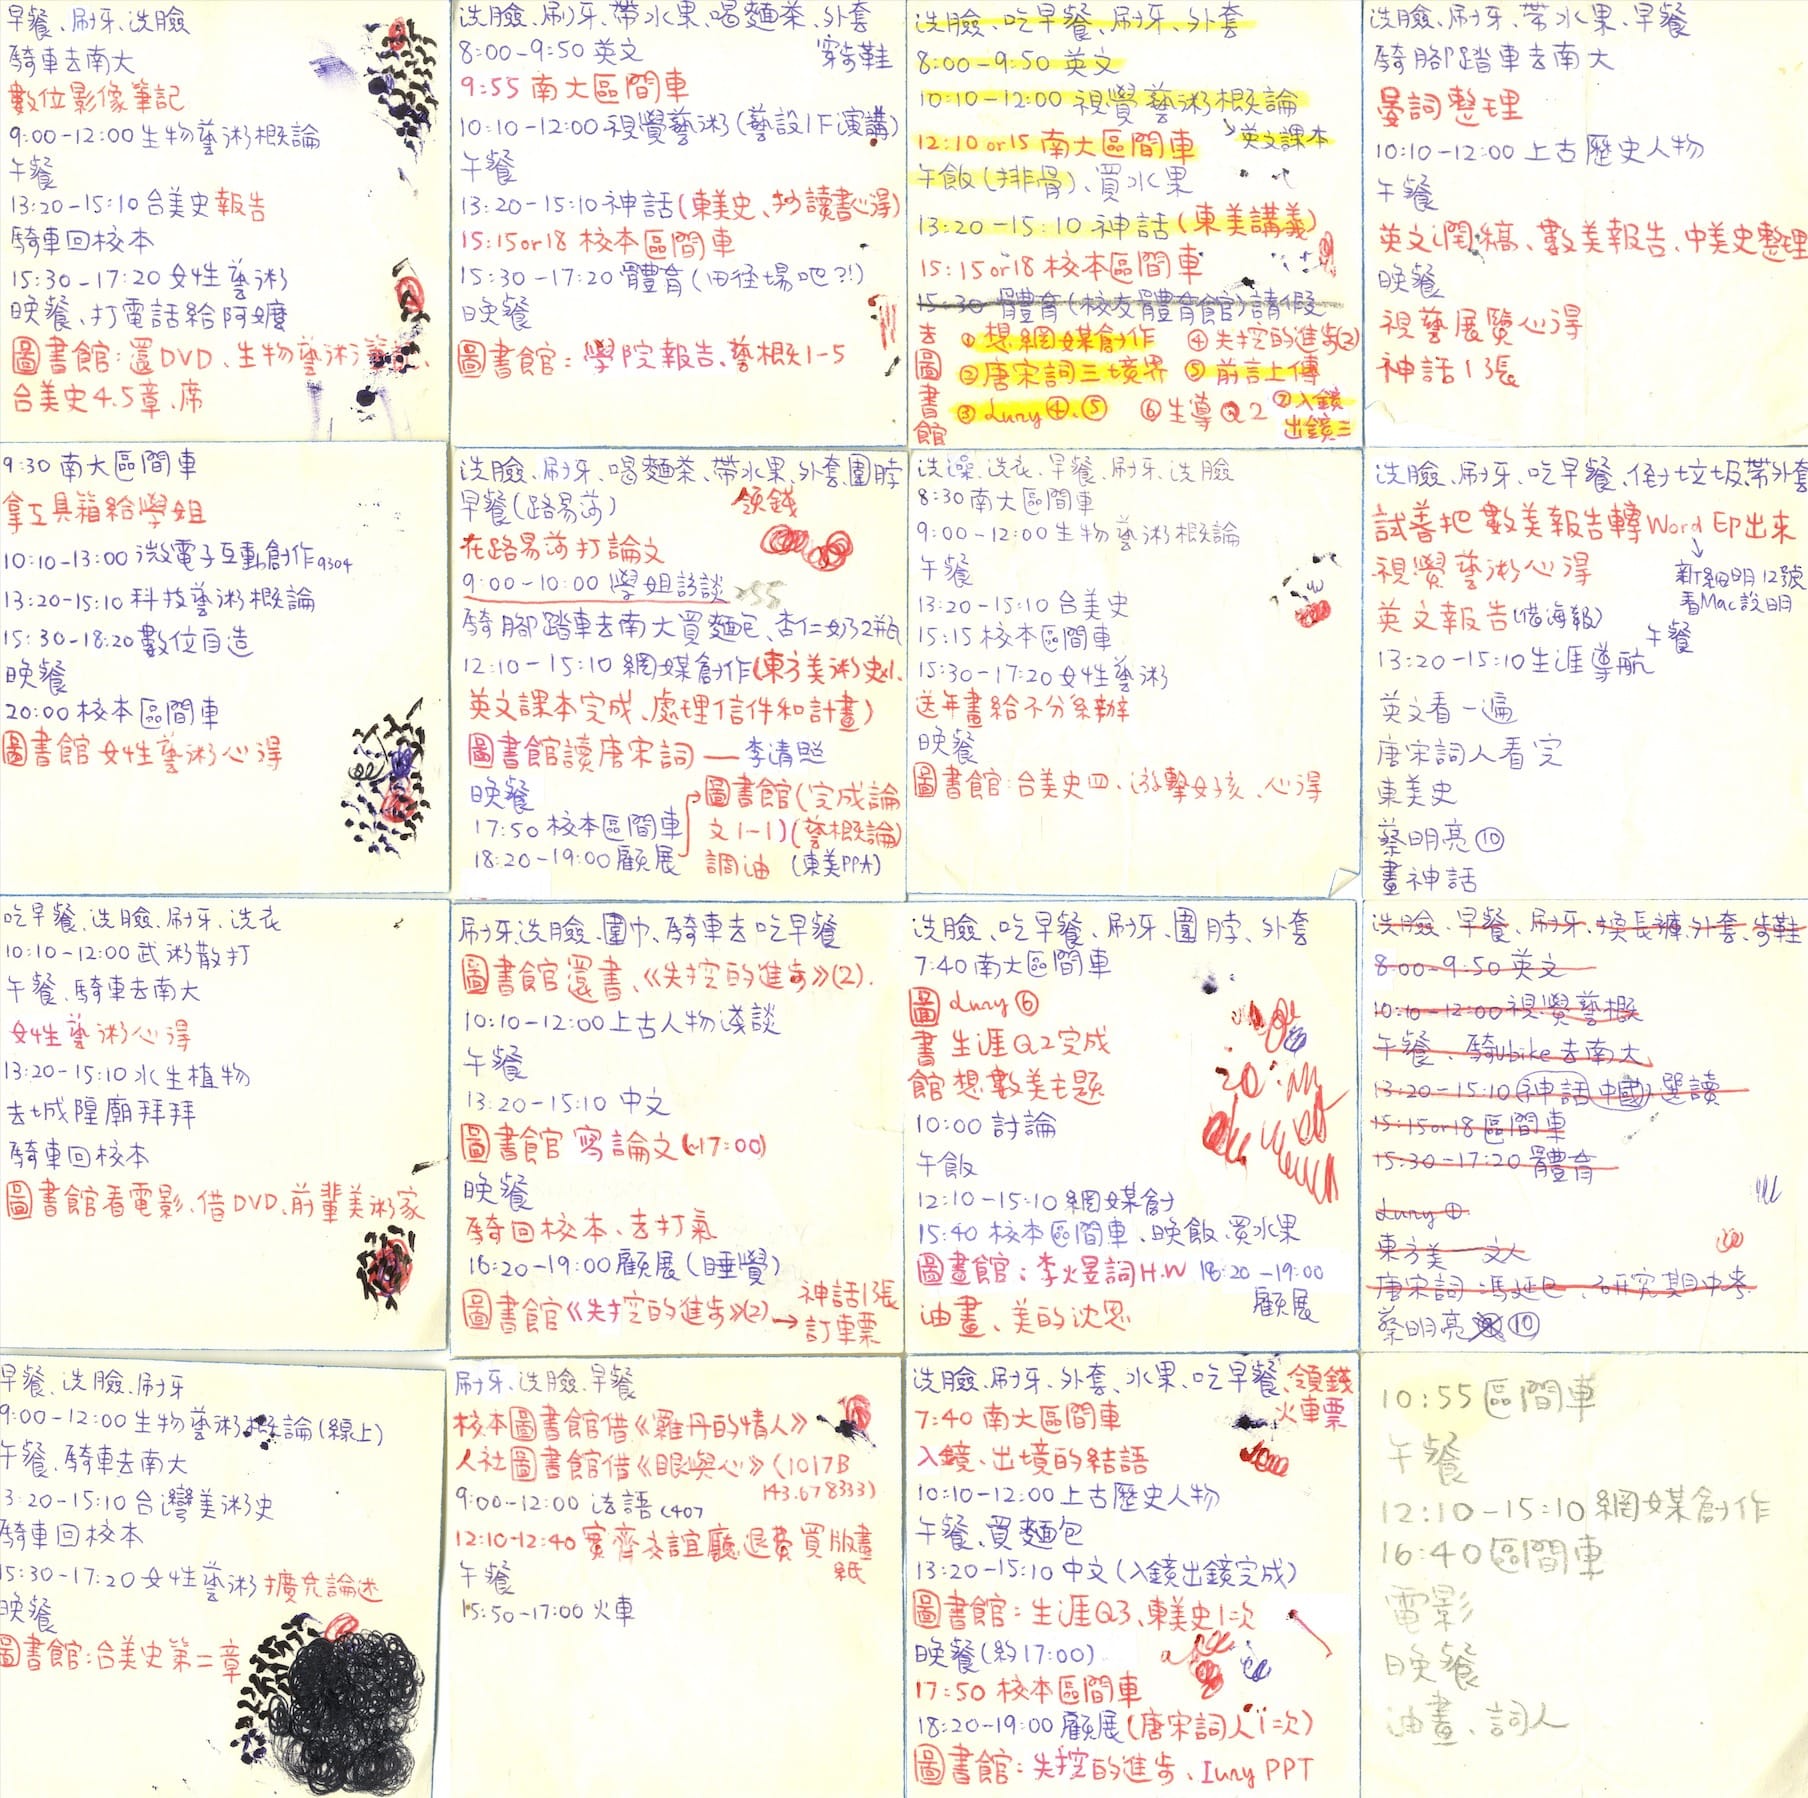 早餐、刷牙、洗臉
騎車去南大
數位影像筆記
9:00-12:00 生物藝術概論
午餐
13:20-15:10 台美史報告
騎車回校本
15:30-17:20 女性藝術
晚餐、打電話給阿嬤
圖書館：還DVD、生物藝術
台美史4.5章、席
洗臉、刷牙、帶水果、喝麵茶、外套
8:00-9:50 英文 穿步鞋
9:55 南大區間車
10:10-12:00 視覺藝術(藝設1F演講)
午餐
13:20-15:10 神話(東美史、抄讀書心得)
15:15or18 校本區間車
15:30-17:20 體育(田径場吧?!)
晚餐
圖書館：學院報告、藝概1-5
洗臉、吃早餐、刷牙、外套
8:00-9:50 英文
10:10-12:00 視覺藝術概論
12:10 or15 南大區間車 英文課本
午飯(排骨)、買水果
13:20-15:10 神話(東美講義)
15:15or18 校本區間車
15:30 體育(校友體育館)請假
去圖書館
①想網媒創作 ④失控的進步(2)
②唐宋詞三境界 ⑤前言上傳
③Luny④、⑤ ⑥生導Q2 ⑦入鏡出鏡三
洗臉、刷牙、帶水果、早餐
騎腳踏車去南大
晏詞整理
10:10-12:00 上古歷史人物
午餐
英文潤稿、數美報告、中美史整理
晚餐
視藝展覽心得
神話13張
9:30 南大區間車
拿工具箱給學姐
10:10-13:00 微電子互動創作9304
13:20-15:10 科技藝術概論
15:30-18:20 數位自造
晚餐
20:00 校本區間車
圖書館 女性藝術心得
洗臉、刷牙、喝麵茶、帶水果、外套圍脖
早餐(路易莎) 領錢
在路易莎打論文
9:00-10:00 學姐訪談
騎腳踏車去南大買麵包、杏仁奶2瓶
12:10-15:10 網媒創作(東方美術史1、
英文課本完成、處理信件和計畫)
圖書館讀唐宋詞——李清照
晚餐
17:50 校本區間車
18:20-19:00 顧展
圖書館(完成論
文1-1)(藝概論)
調油 (東美PPt)
洗澡、洗衣、早餐、刷牙、洗臉
8:30 南大區間車
9:00-12:00 生物藝術概論
午餐
13:20-15:10 台美史
15:15 校本區間車
15:30-17:20 女性藝術
送年畫給不分系辦
晚餐
圖書館：台美史四、游擊女孩、心得
洗臉、刷牙、吃早餐、倒垃圾、帶外套
試著把數美報告轉Word EP出來
視覺藝術心得 新細明12號
看Mac說明
英文報告(借海報) 午餐
13:20-15:10 生涯導航
英文看一遍
唐宋詞人看完
東美史
蔡明亮⑩
畫神話
吃早餐、洗臉、刷牙、洗衣
10:10-12:00 武術散打
午餐、騎車去南大
女性藝術心得
13:20-15:10 水生植物
去城隍廟拜拜
騎車回校本
圖書館看電影、借DVD、前輩美術家
刷牙、洗臉、圍巾、騎車去吃早餐
圖書館還書、《失控的進步》(2).
10:10-12:00 上古人物淺談
午餐
13:20-15:10 中文
圖書館 寫論文(~17:00)
晚餐
騎回校本、去打氣
18:20-19:00 顧展(睡覺)
圖書館《失控的進步》(2)→神話13張
訂車票
洗臉、吃早餐、刷牙、圍脖、外套
7:40 南大區間車
圖書館
Luny⑥
生涯Q2完成
想數美主題
10:00 討論
午飯
12:10-15:10 網媒創
15:40 校本區間車、晚飯、買水果
圖書館：李煜詞H.W 18:20-19:00
顧展
油畫、美的沈思
洗臉、早餐、刷牙、換長褲、外套、步鞋
8:00-9:50 英文
10:10-12:00 視覺藝概
午餐、騎ubike去南大
13:20-15:10 (神話中國)選讀
15:15or18 區間車
15:30-17:20 體育
Luny④
東方美——文人
唐宋詞 馮延巳、研究期中考
蔡明亮⑩
早餐、洗臉、刷牙
9:00-12:00 生物藝術概論(線上)
午餐、騎車去南大
13:20-15:10 台灣美術史
騎車回校本
15:30-17:20 女性藝術擴充論述
晚餐
圖書館：台美史第二章
刷牙、洗臉、早餐
校本圖書館借《羅丹的情人》
人社圖書館借《眼與心》(1017B
143.67 8333)
9:00-12:00 法語 C407
12:10-12:40 實齊交誼廳退費買版畫
紙
午餐
15:50-17:00 火車
洗臉、刷牙、外套、水果、吃早餐、領錢
火車票
7:40 南大區間車
入鏡、出境的結語
10:10-12:00 上古歷史人物
午餐、買麵包
13:20-15:10 中文(入鏡出鏡完成)
圖書館：生涯Q3、東美史1=次
晚餐(約17:00)
17:50 校本區間車
18:20-19:00 顧展(唐宋詞人1=次)
圖書館：失控的進步、Iuny PPT
10:55 區間車
午餐
12:10-15:10 網媒創作
16:40 區間車
電影
晚餐
油畫、詞人